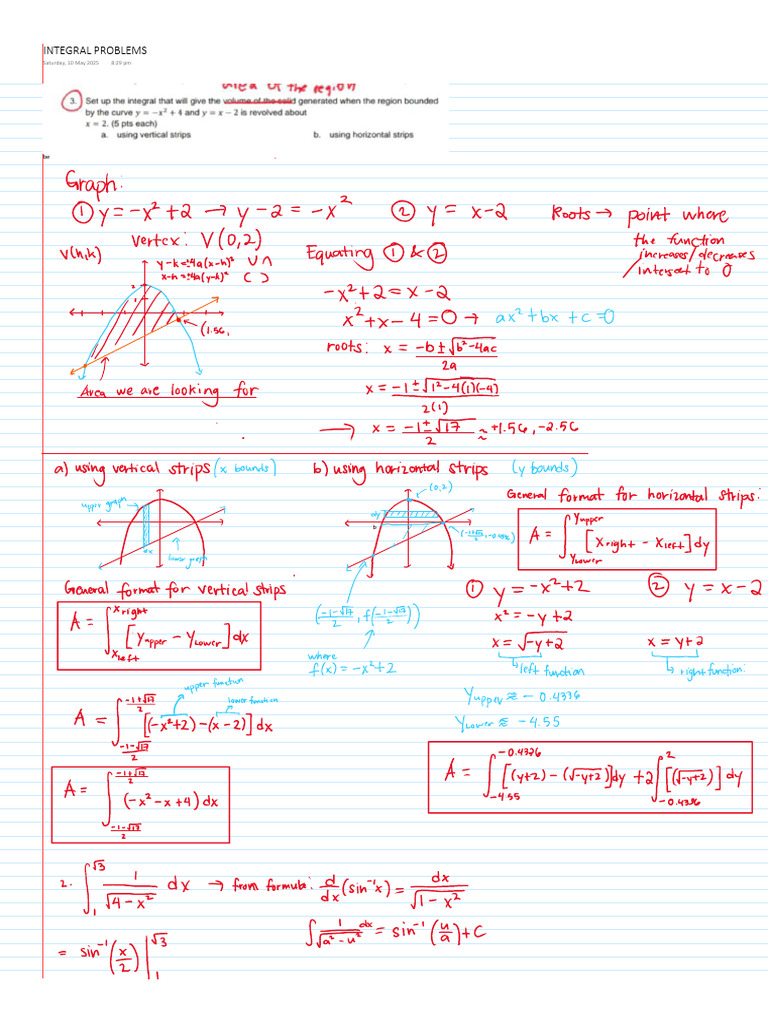 INTEGRAL PROBLEMS
Saturday, 10 May 2025 8:29 pm
area of the region
3. Set up the integral that will give the volume of the solid generated when the region bounded
by the curve y = −x² + 4 and y = x − 2 is revolved about
x = 2. (5 pts each)
a. using vertical strips b. using horizontal strips
be
Graph:
① y = -x² + 2 → y - 2 = -x² ② y = x - 2 Roots → point where
the function
increases/decreases
/intersect to 0
vertex: V(0,2)
V(h,k)
y-k=±4a(x-h)² ∪ ∩
x-h=±4a(y-k)² ⊂ ⊃
2
1
(1.56,
Area we are looking for
Equating ① & ②
-x² + 2 = x - 2
x² + x - 4 = 0 → ax² + bx + c = 0
roots: x = -b ± √b² - 4ac / 2a
x = -1 ± √1² - 4(1)(-4) / 2(1)
→ x = -1 ± √17 / 2 ≈ +1.56, -2.56
a) using vertical strips (x bounds)
upper graph
dx
lower graph
General format for vertical strips:
A = ∫ x left x right [y upper - y lower] dx
upper function
lower function
A = ∫ -1-√17/2 -1+√17/2 [(-x²+2) - (x-2)] dx
A = ∫ -1-√17/2 -1+√17/2 (-x² - x + 4) dx
b) using horizontal strips (y bounds)
(0,2)
dy
(-1-√17/2, f(-1-√17/2))
where
f(x) = -x² + 2
General format for horizontal strips:
A = ∫ y lower y upper [x right - x left] dy
① y = -x² + 2 ② y = x - 2
x² = -y + 2
x = √-y+2 x = y + 2
↳ left function ↳ right function:
y upper ≈ -0.4376
y lower ≈ -4.55
A = ∫ -4.55 -0.4376 [(y+2) - (√-y+2)] dy + 2 ∫ -0.4376 2 [(√-y+2)] dy
2. ∫ 1 √3 1/√4-x² dx → from formula: d/dx (sin⁻¹x) = dx/√1-x²
∫ 1/√a²-u² dx = sin⁻¹(u/a) + C
= sin⁻¹(x/2) | 1 √3